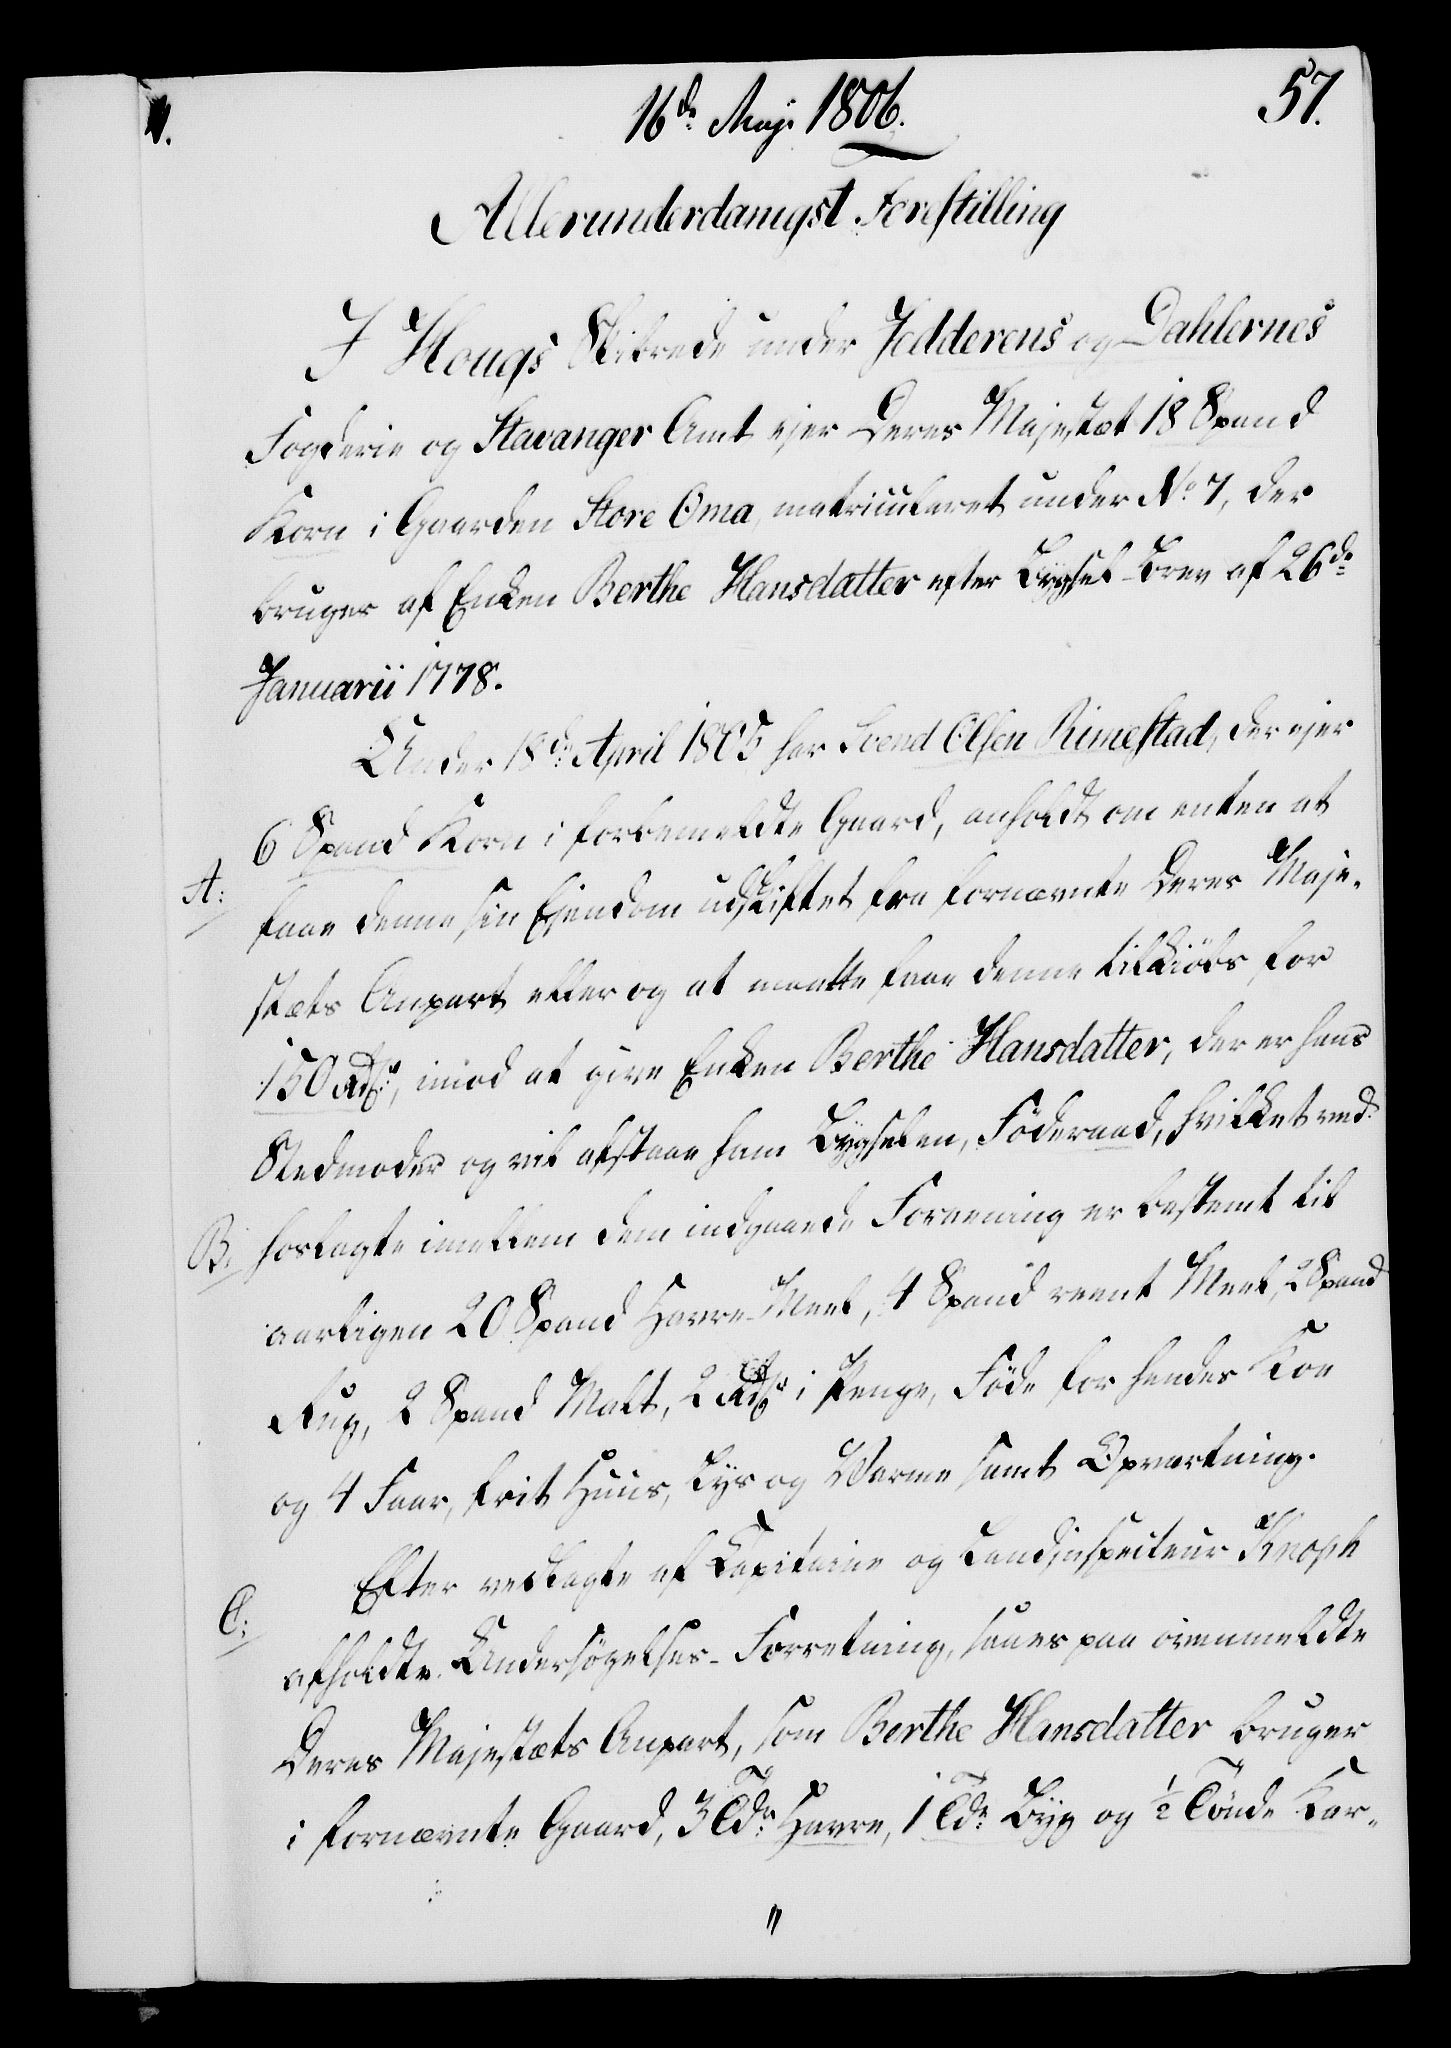 16de Maji 1806.
57.
Allerunderdanigst Forestilling
I Hougs Skibrede under Jedderens og Dahlernes
Fogderie og Stavanger Amt ejer Deres Majestæt 18 Spand
Korn i Gaarden Store Oma, matriculeret under No 7, der
bruges af Enken Berthe Hansdatter efter Bygsel-Brev af 26de
Januarii 1778.
Under 18de April 1805 har Svend Olsen Rimestad, der ejer
6 Spand Korn i forbemeldte Gaard, anholdt om enten at
A:
faae denne sin Ejendom udskiftet fra fornævnte Deres Maje-
stæts Anpart eller og at maatte faae denne tilkiøbs for
150 Rdr, imod at give Enken Berthe Hansdatter, der er hans
Stedmoder og vil afstaae ham Bygselen, Föderaad, hvilket ved
B:
hoslagte imellem dem indgaaede Forening er bestemt til
aarligen 20 Spand Havre-Meel, 4 Spand reent Meel, 2 Spand
Rug, 2 Spand Malt, 2 Rdr i Penge, Föde for hendes Koe
og 4 Faar, frit Huus, Lys og Varme samt Opvartning.
Efter vedlagte af Capitaine og Landinspecteur Knoph
C:
afholdte Undersögelses-Forretning, saaes paa ovenmeldte
Deres Majestæts Anpart, som Berthe Hansdatter bruger
i fornævnte Gaard, 3 Tdr Havre, 1 Tde Byg og ½ Tönde Kar-